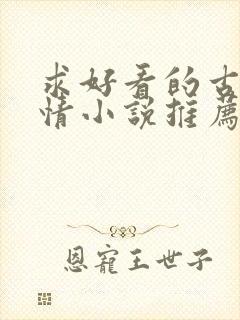 求好看的古
情小說推薦
恩寵王世子